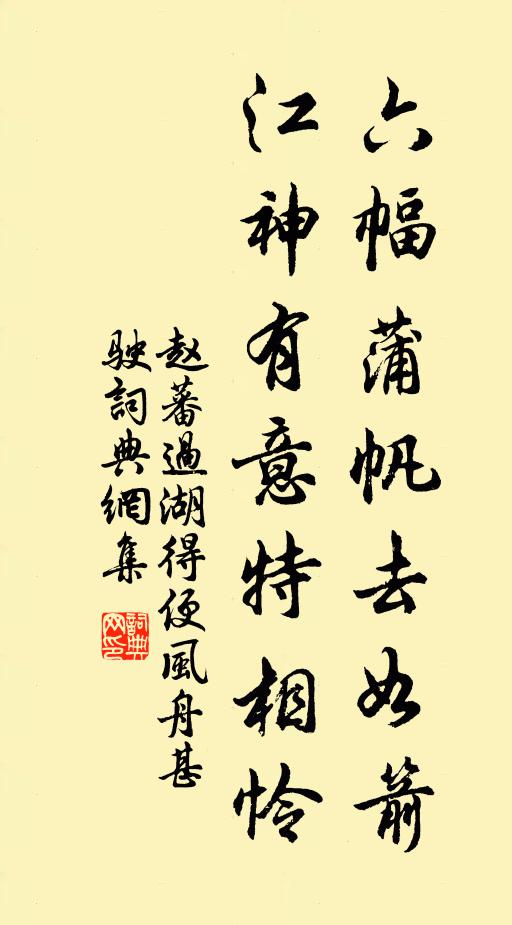 六幅蒲帆去如箭
江神有意特相怜
赵蕃過湖得便風舟甚
駛詞典網集
詞典
网印